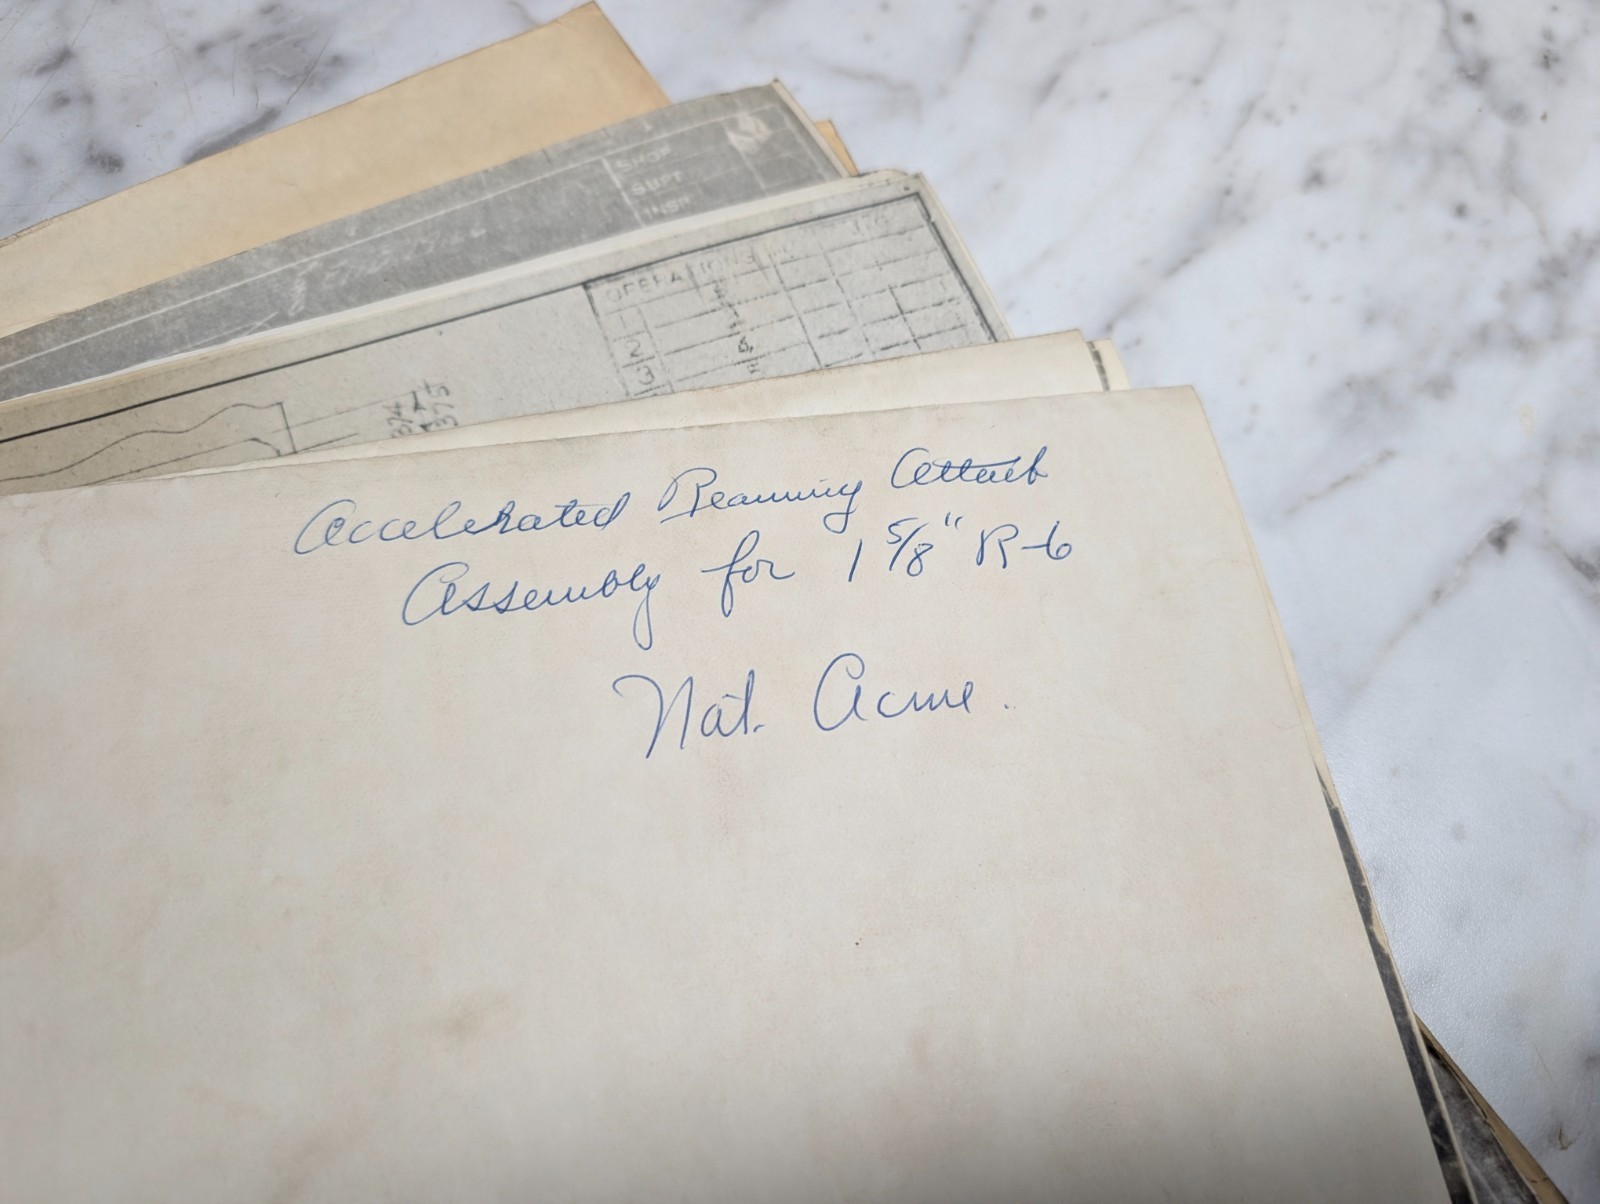 SHOP
SUPT
INSP
OPERATIONS
1
2
3
374
375
Accelerated Reaming Attach
Assembly for 1 5/8" R-6
Nat. Acme.